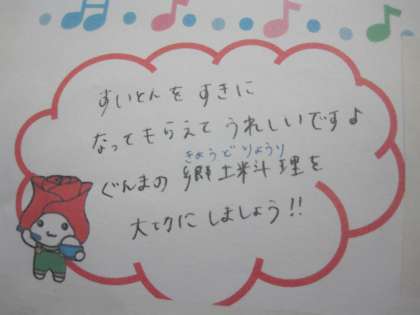 すいとんを すきに
なってもらえて うれしいですよ
きょうど りょうり
ぐんまの 郷土料理を
大切に しましょう!!